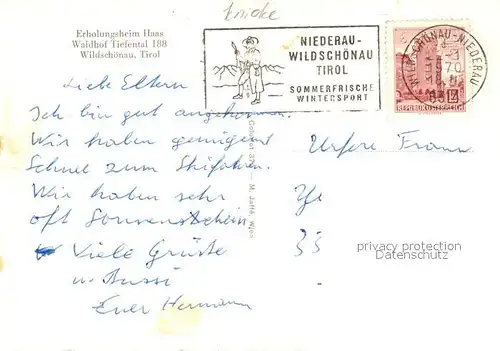 Erholungsheim Haas
Waldhof Tiefental 188
Wildschönau, Tirol
NIEDERAU-
WILDSCHÖNAU
TIROL
SOMMERFRISCHE
WINTERSPORT
WILDSCHÖNAU-NIEDERAU
70
REPUBLIK ÖSTERREICH
Liebe Eltern
Ich bin gut angekommen.
Wir haben genügend
Schnee zum Skifahren.
Wir haben sehr
oft Sonnenschein.
Viele Grüße
u. Bussi
Euer Hermann
M. Jaffé, Wien
privacy protection
Datenschutz